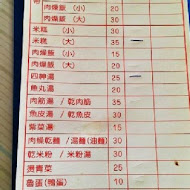 肉燥飯 (小) 20
肉燥飯 (大) 30
米糕 (小) 30
米糕 (大) 35
肉燥飯 (小) 15
肉燥飯 (大) 30
四神湯 25
魚丸湯 20
肉筋湯 / 乾肉筋 35
魚皮湯 / 乾魚皮 30
紫菜湯 15
肉燥乾麵 / 湯麵(油麵) 30
乾米粉 / 米粉湯 30
燙青菜 25
魯蛋(鴨蛋) 10